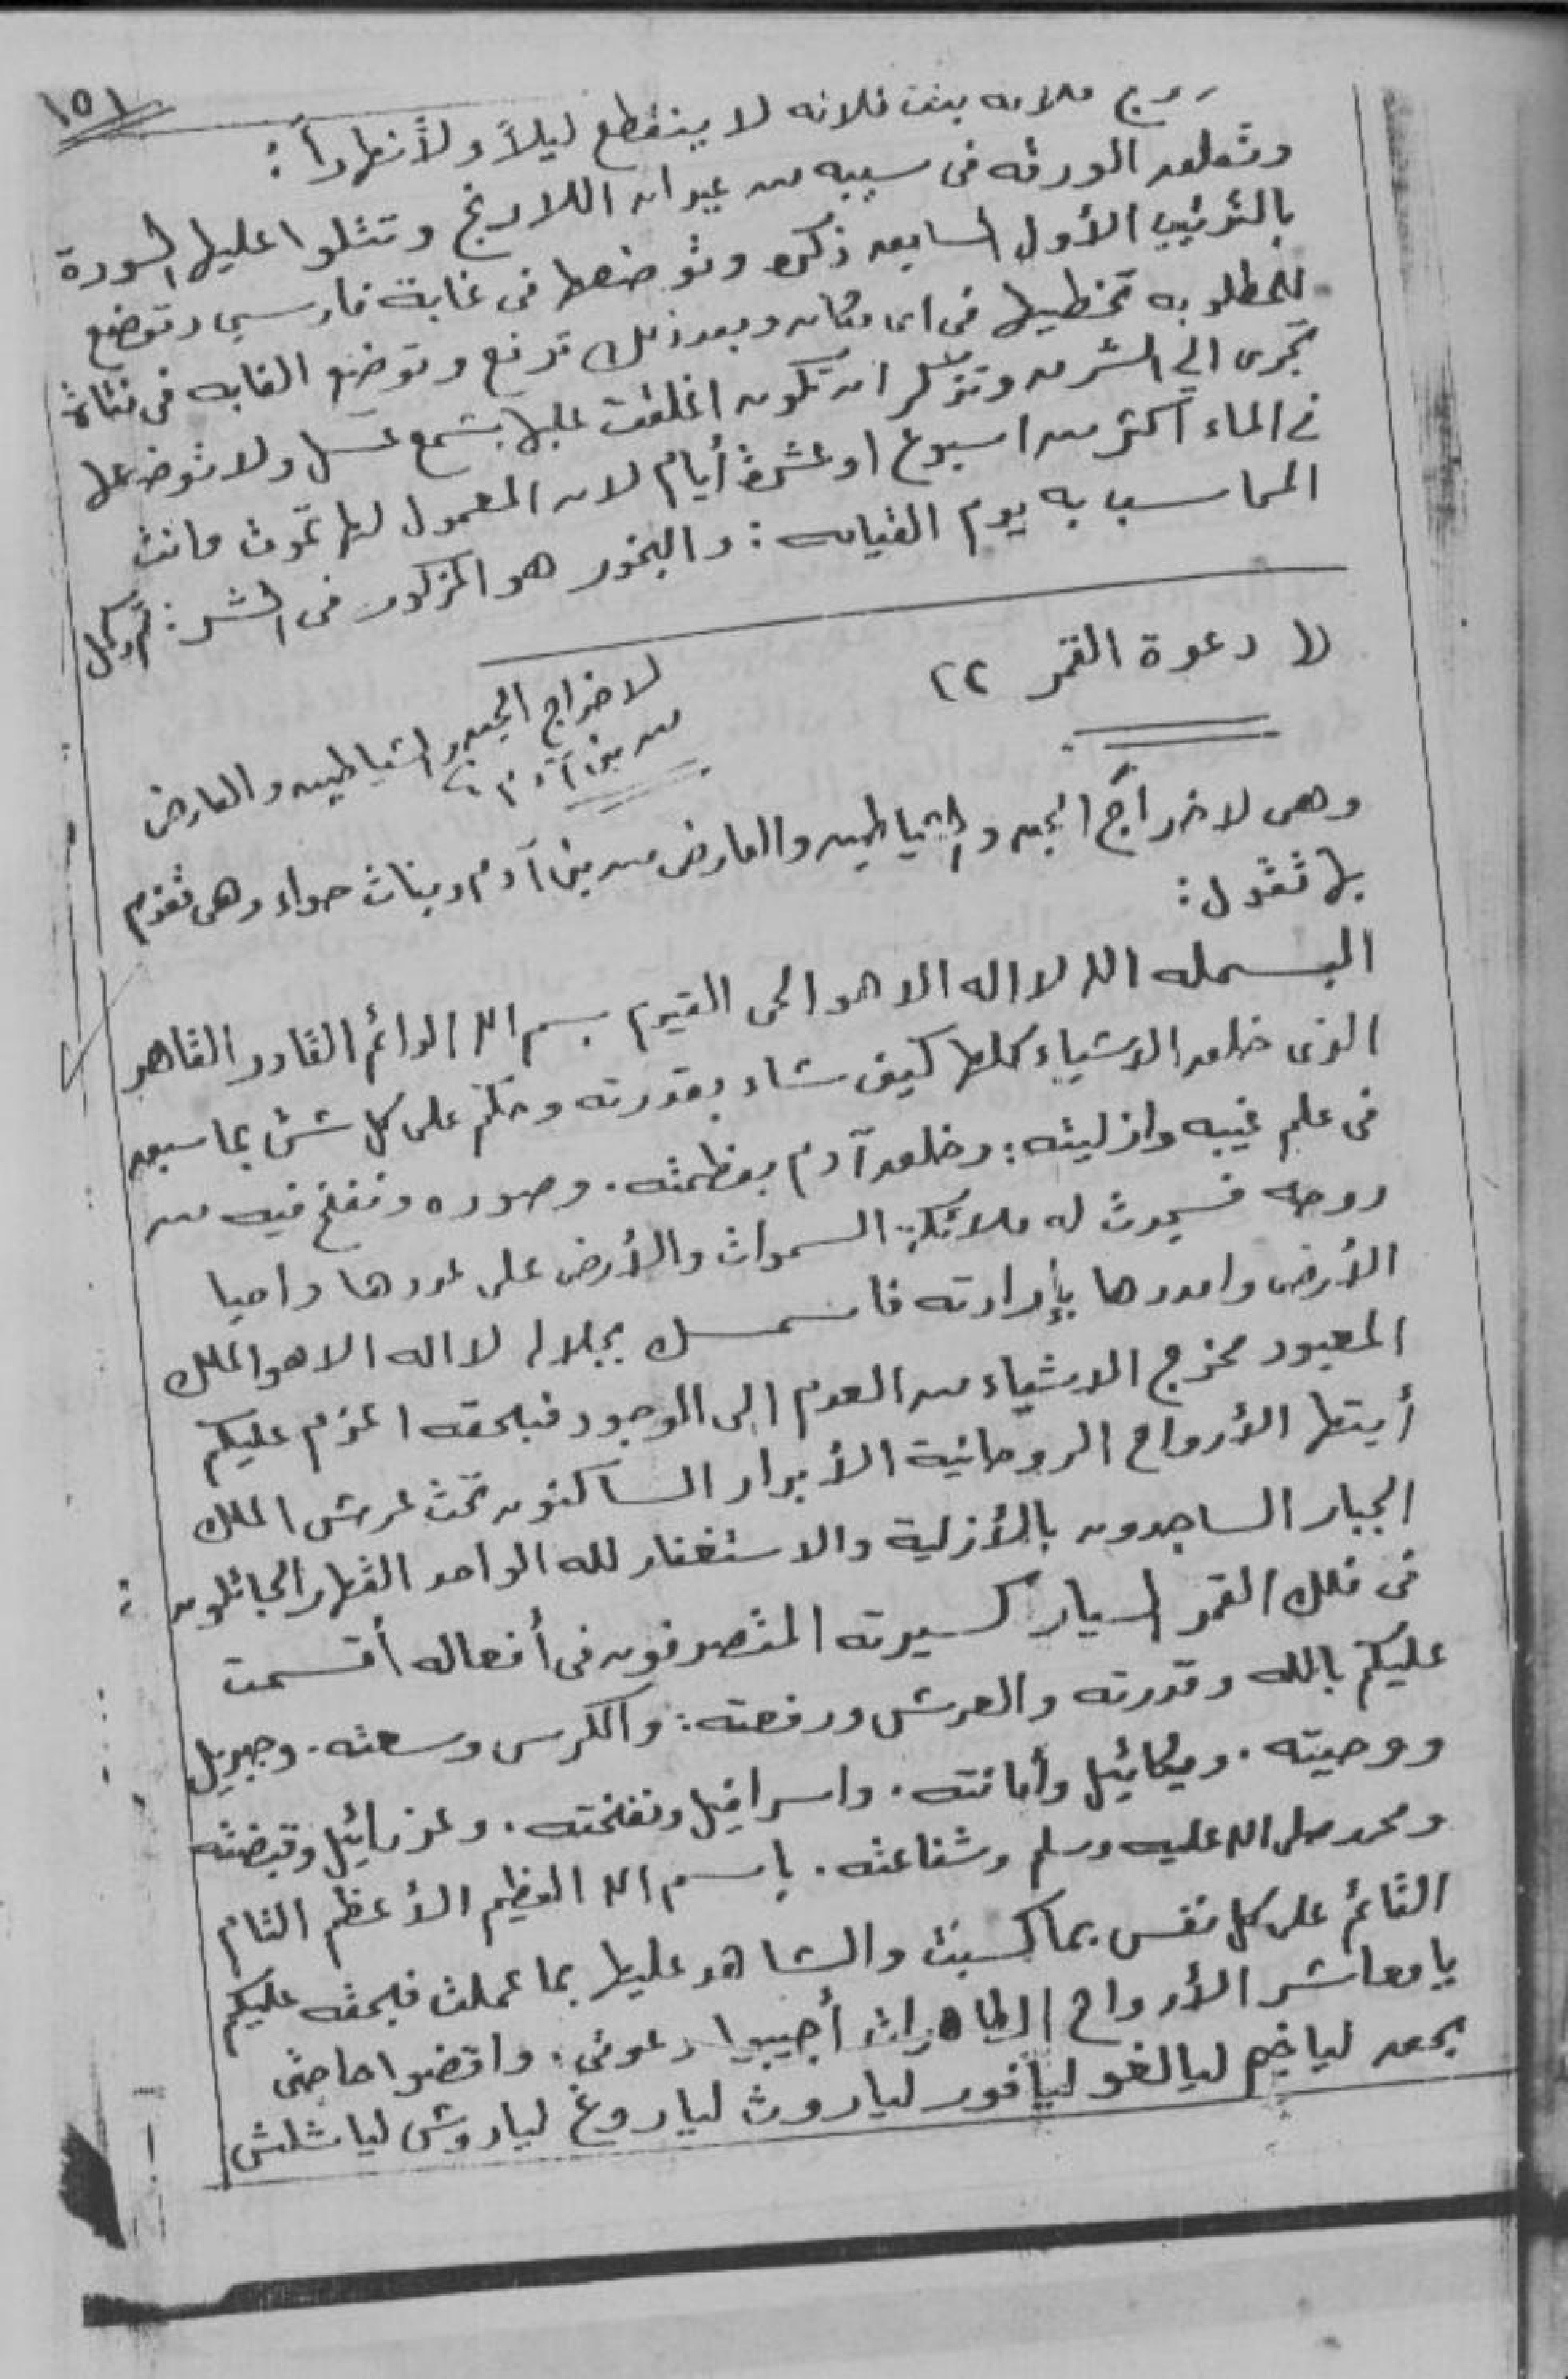 ١٥١
فلانه بنت فلانه لا ينقطع ليلاً ولا نهاراً :
وتعلق الورقه فى سيبه من عيدان اللارنج وتتلوا عليها السورة
بالترتيب الأول السابق ذكره وتوضعها فى غابة فارسي وتوضع
للمطلوبه تخطيها فى اى مكان وبعد ذلك ترفع وتوضع الغابه فى قناة
تجرى الى الشرق وتؤكد ان تكون اغلقت عليها بشمع عسل ولا توضعها
فى الماء اكثر من اسبوع او عشرة أيام لان المعمول لها تموت وانت
المحاسب به يوم القيامه : والبخور هو المذكور فى الشر : تم وكمل
دعوة القمر ٢٢
لاخراج الجن والشياطين والعارض
من بنى آدم
وهى لاخراج الجن والشياطين والعارض من بنى آدم وبنات حواء وهى تعزم
بها تقول :
البسمله الله لا اله الا هو الحى القيوم بسم الله الدائم القادر القاهر
الذى خلق الاشياء كلها كيف شاء بقدرته وحكم على كل شئ بما سبق
فى علم غيبه وازليته : وخلق آدم بعظمته . وصوره ونفخ فيه من
روحه فسجدت له ملائكة السموات والأرض على عددها واحيا
الأرض وامددها بإرادته فاستمسك بجلاله لا اله الا هو الملك
المعبود مخرج الاشياء من العدم الى الوجود فبحقه اعزم عليكم
أيتها الأرواح الروحانية الأبرار الساكنون تحت عرش الملك
الجبار الساجدون بالأزلية والاستغفار لله الواحد القهار الجائلون
فى فلك القمر السيار كسيرته المتصرفون فى أفعاله أقسمت
عليكم بالله وقدرته والعرش ورفعته : والكرسى وسعته . وجبريل
ووحيته . وميكائيل وأمانته . واسرافيل ونفخته . وعزرائيل وقبضته
ومحمد صلى الله عليه وسلم وشفاعته . باسم الله العظيم الأعظم التام
القائم على كل نفس بما كسبت والشاهد عليها بما عملت فبحقه عليكم
يا معاشر الأرواح الطاهرات أجيبوا دعوتى . واقضوا حاجتى
بحق لياخيم ليالغو ليافور لياروث لياروغ لياروش لياشلش